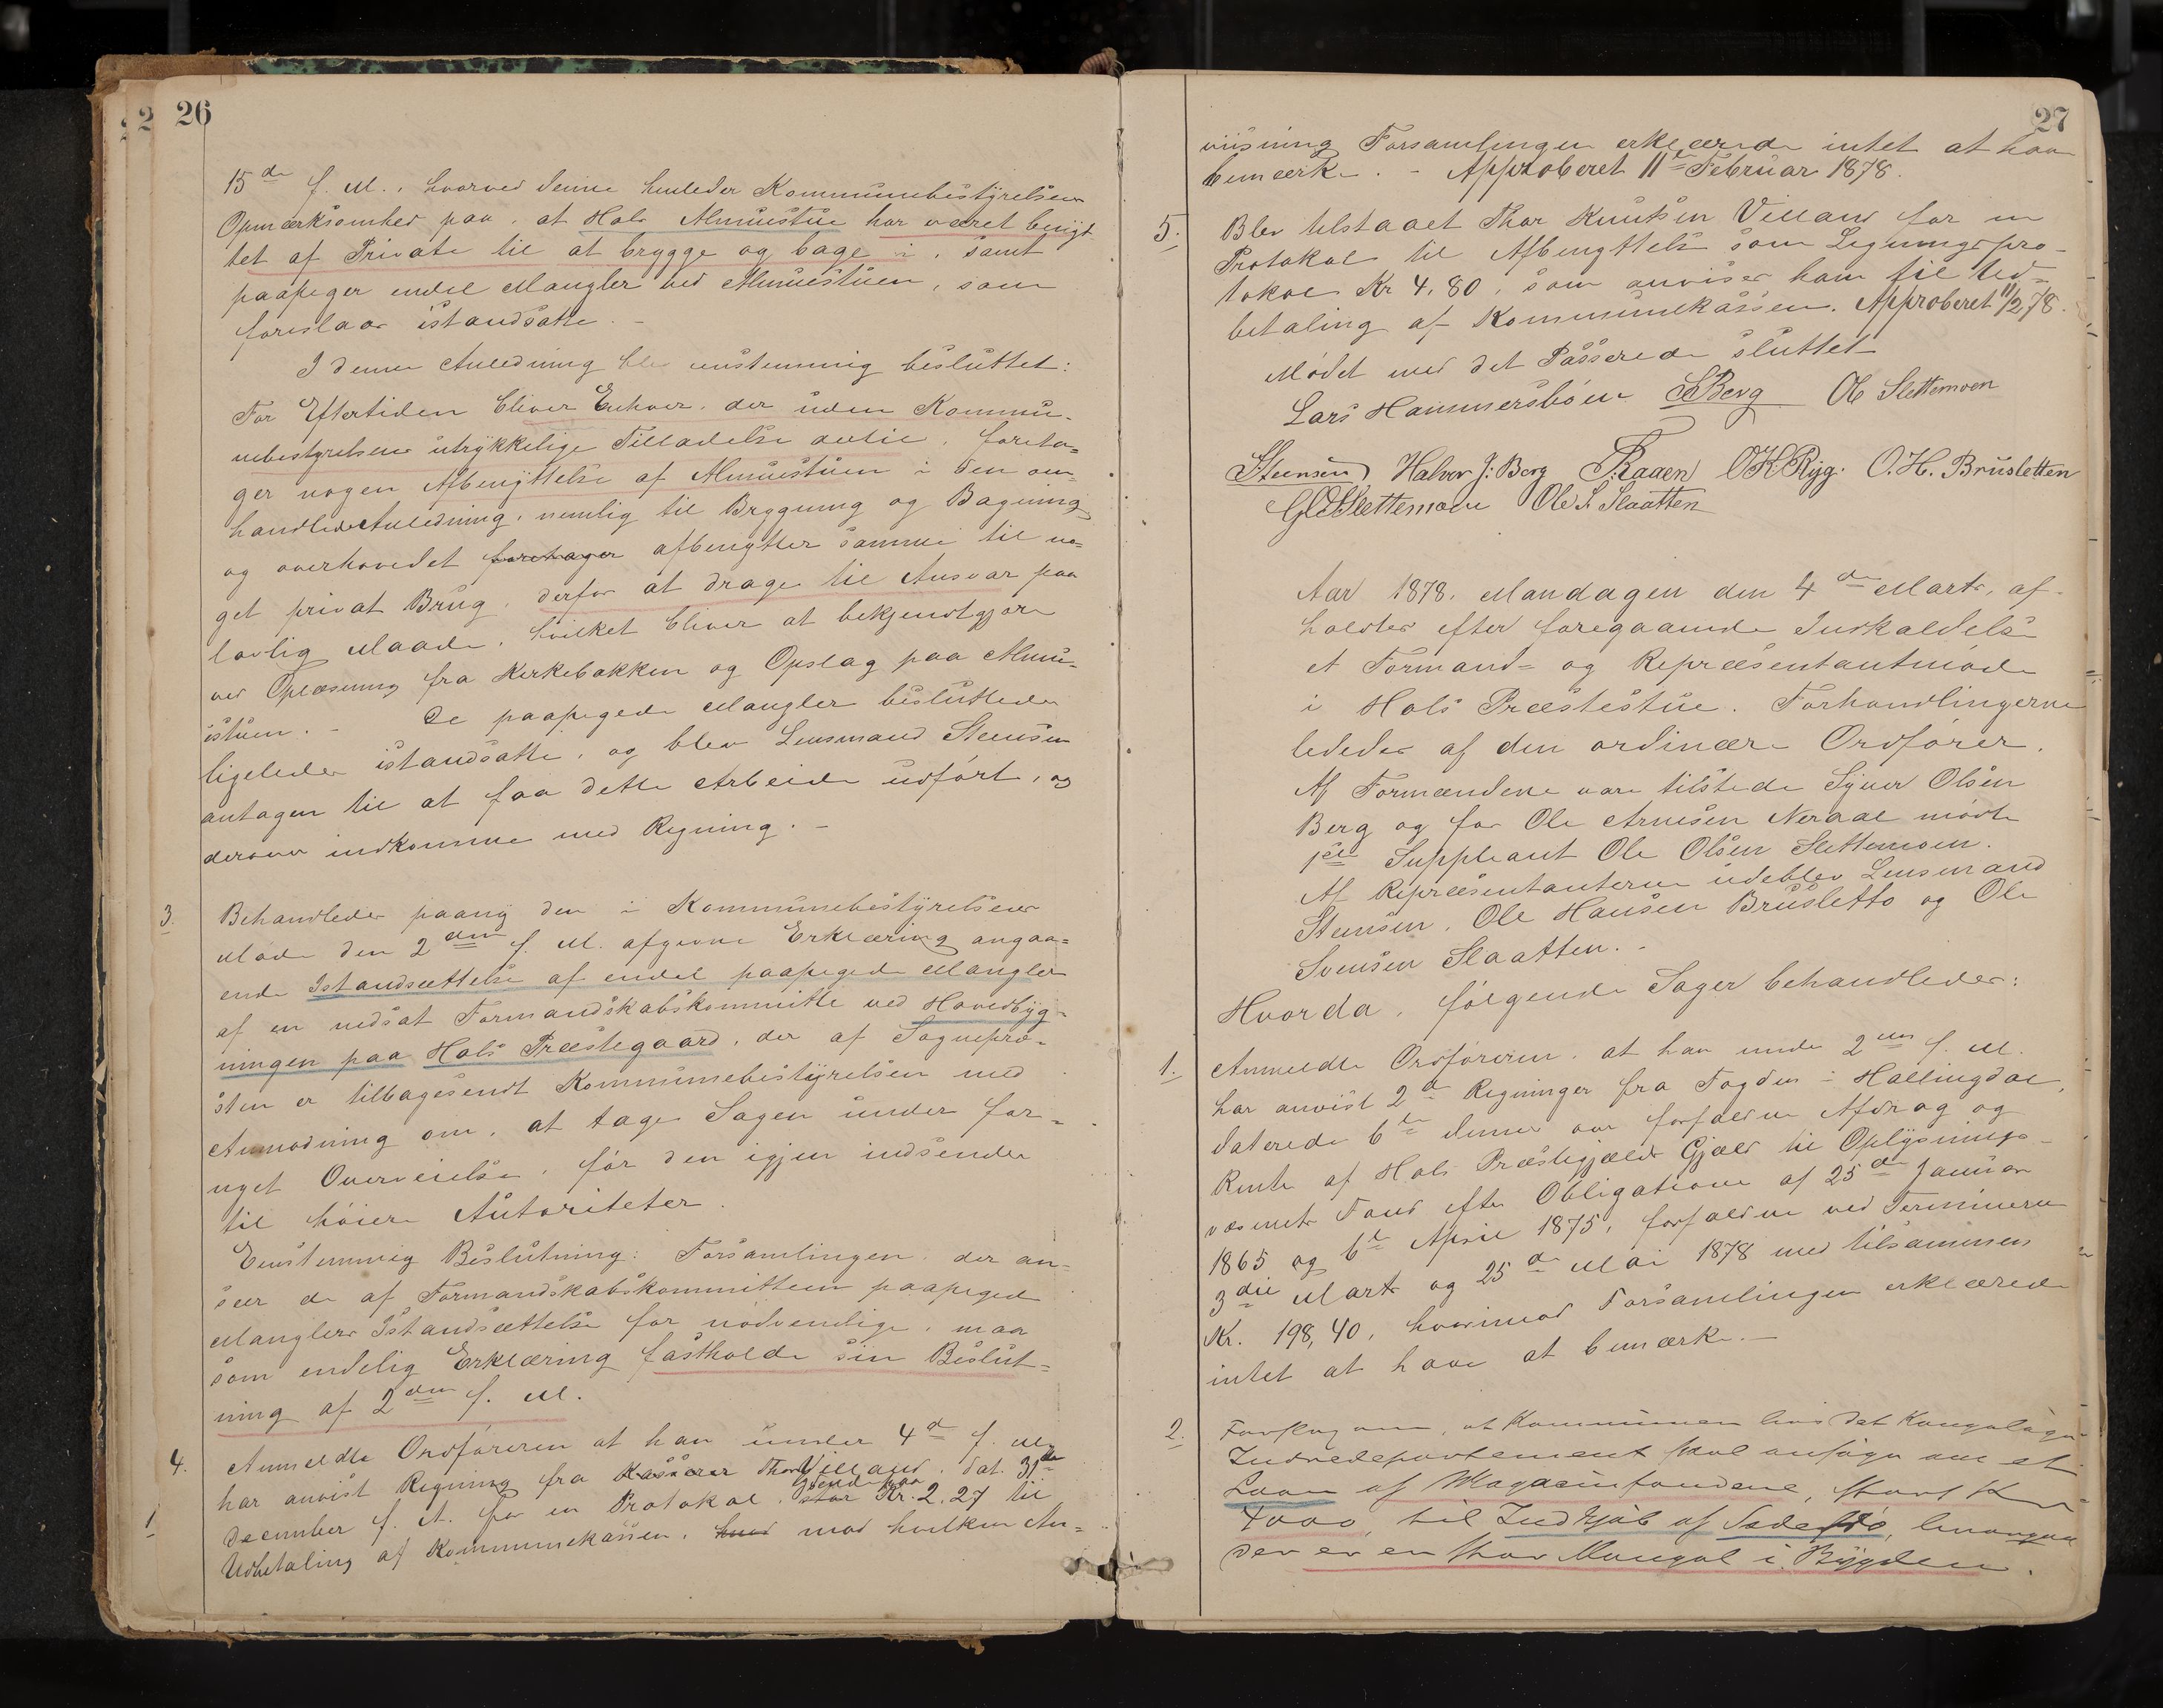 26
15de f. M., hvorved denne henleder Kommunebestyrelsens
Opmærksomhed paa, at Hols Almuestue har været benyt
tet af Private til at brygge og bage i, samt
paapeger endel Mangler ved Almuestuen, som
foreslaaes istandsatte. -
I denne Anledning blev enstemmig besluttet:
For Eftertiden bliver Enhver, der uden Kommu-
nebestyrelsens udtrykkelige Tilladelse dertil, foreta-
ger nogen Afbenyttelse af Almuestuen i den om-
handlede Anledning, nemlig til Brygning og Bagning
og overhovedet foretager afbenytter samme til no-
get privat Brug, derfor at drage til Ansvar paa
lovlig Maade, hvilket bliver at bekjendtgjøre
ved Oplæsning fra Kirkebakken og Opslag paa Almu-
estuen. - De paapegede Mangler besluttedes
ligeledes istandsatte, og blev Lensmand Steensen
antagen til at faa dette Arbeide udført, og
derover indkomme med Regning. -
3. Behandledes paany den i Kommunebestyrelsens
Møde den 2den f. M. afgivne Erklæring angaa-
ende Istandsættelse af endel paapegede Mangler
af en nedsat Formandskabskommitte ved Hovedbyg-
ningen paa Hols Præstegaard, der af Sognepræ-
sten er tilbagesendt Kommunebestyrelsen med
Anmodning om, at tage Sagen under for-
nyet Overveielse, før den igjen indsendes
til høiere Autoriteter.
Eenstemmig Beslutning: Forsamlingen, der an-
seer de af Formandskabskommitteen paapegede
Manglers Istandsættelse for nødvendige, maa
som endelig Erklæring fastholde sin Beslut-
ning af 2den f. M.
4. Anmeldte Ordføreren at han under 4de f. M.
har anvist Regning fra Kasserer Thor Villand, dat. 31de
December f. A. for en Protokol, stor Kr. 2,27 til
Udbetaling af Kommunekassen, hvad mod hvilken An-
27
viisning Forsamlingen erklærede intet at have
bemærke. - Approberet 11te Februar 1878.
5. Blev tilstaaet Thor Knutsen Villand for en
Protokol til Afbenyttelse som Ligningspro-
tokol Kr 4,80, som anvises ham til Ud-
betaling af Kommunekassen. Approberet 11/2 78.
Mødet med det Passerede sluttet
Lars Hammersbøen SOBerg Ole Slettemoen
Steensen Halvor J. Berg TRaaen OKRyg. O. H. Brusletten
GOSlettemoen Ole S. Slaatten
Aar 1878, Mandagen den 4de Marts, af-
holdtes efter foregaaende Indkaldelse
et Formand- og Repræsentantmøde
i Hols Præstestue. Forhandlingerne
lededes af den ordinære Ordfører.
Af Formændene vare tilstede Syver Olsen
Berg og for Ole Arnesen Neraal mødte
1ste Suppleant Ole Olsen Slettemoen.
Af Repræsentanterne udeblev Lensmand
Steensen, Ole Hansen Brusletto og Ole
Svensen Slaatten. -
Hvorda, følgende Sager behandledes:
1. Anmeldte Ordføreren, at han under 2den f. M.
har anvist 2de Regninger fra Fogden i Hallingdal,
daterede 6te dennes over forfaldne Afdrag og
Rente af Hols Præstegjælds Gjæld til Oplysnings-
væsenets Fond efter Obligatione af 25de Januar
1865 og 6te April 1875, forfaldne ved Terminerne
3die Marts og 25de Mai 1878 med tilsammen
Kr. 198,40, hvorimod Forsamlingen erklærede
intet at have at bemærke. -
2. Forslag om, at Kommunen hos det Kongelige
Indredepartement skal ansøge om et
Laan af Magasinfondene, stort Kr
4000, til Indkjøb af Sædefrø, hvorpaa
der er en stor Mangel i Bygden.